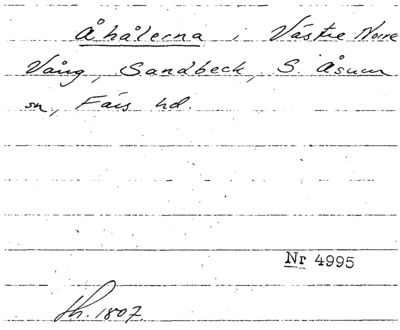 Åhålerna i Västre Norre
Vång, Sandbeck, S. Åsum
sn, Färs hd.
Nr 4995
Sk. 1807